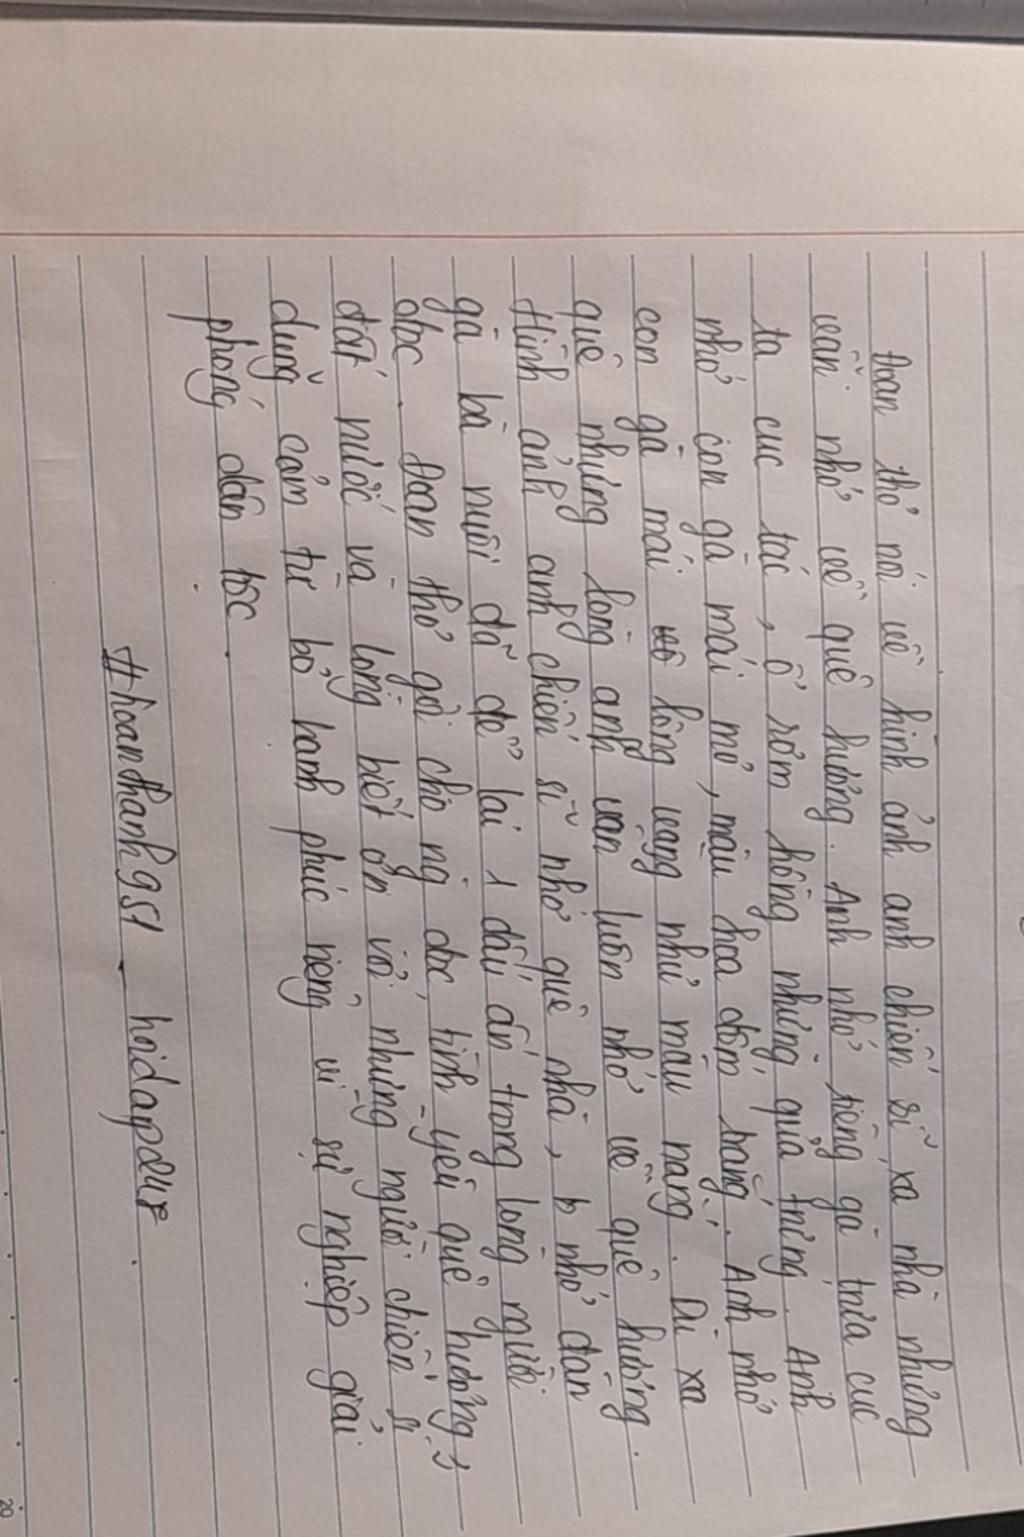 Đoạn thơ nói về hình ảnh anh chiến sĩ xa nhà nhưng
vẫn nhớ về quê hương. Anh nhớ tiếng gà trưa cục
ta cục tác, ổ rơm hồng những quả trứng. Anh
nhớ con gà mái mơ, màu hoa đốm trắng. Anh nhớ
con gà mái lông vàng như màu nắng. Dù xa
quê nhưng lòng anh vẫn luôn nhớ về quê hương.
Hình ảnh anh chiến sĩ nhớ quê nhà, b nhớ đàn
gà bà nuôi đã để lại 1 dấu ấn trong lòng người
đọc. Đoạn thơ gợi cho ng đọc tình yêu quê hương,
đất nước và lòng biết ơn với những người chiến sĩ
dũng cảm từ bỏ hạnh phúc riêng vì sự nghiệp giải
phóng dân tộc.
#hoanthanh951 _ hoidap247
20